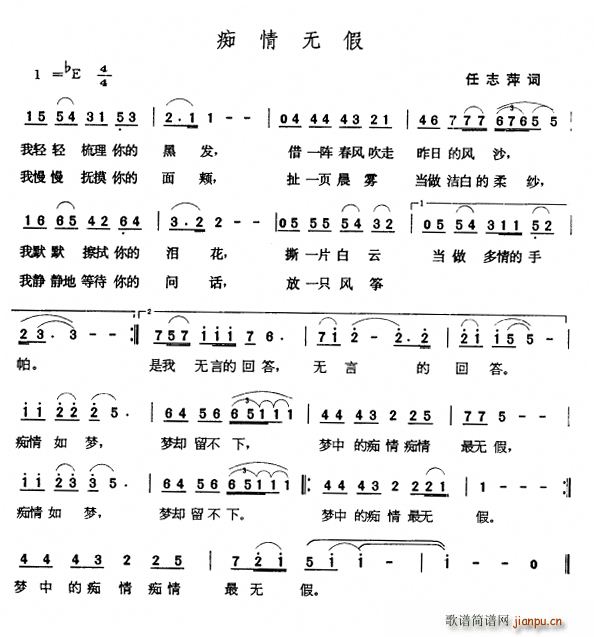 痴情无假
1=♭E 4/4 任志萍词
15 54 31 53 | 2·1 1 - - | 04 44 43 21 | 46 777 6765 5 |
我轻轻 梳理你的 黑发， 借一阵春风吹走 昨日的风 沙，
我慢慢 抚摸你的 面颊， 扯一页晨雾 当做洁白的柔纱，
16 65 42 64 | 3·2 2 - - | 05 55 54 32 | 05 54 311 52 |
我默默 擦拭你的 泪花， 撕一片白云 当做 多情的手
我静静地等待你的 问话， 放一只风筝
23 3· - - :‖ 757 111 7 6· | 71 2 - 2·2 | 21 155 - - |
帕。 是我 无言的回答， 无言 的 回答。
11 22 25· | 64 56 65111 | 44 43 2 25 | 77 5 - - |
痴情如梦， 梦却留不下， 梦中的痴情痴情 最无假，
11 22 35· | 64 56 65111 ‖: 44 43 222 221 | 1 - - - :‖
痴情如梦， 梦却留不下。 梦中的痴情最无 假。
4 4 4 3 2 2 5 | 7 21 | 51 1 - - | 1 - - 0 ‖
梦中的痴情痴情 最无 假。
歌谱简谱网
jianpu.cn